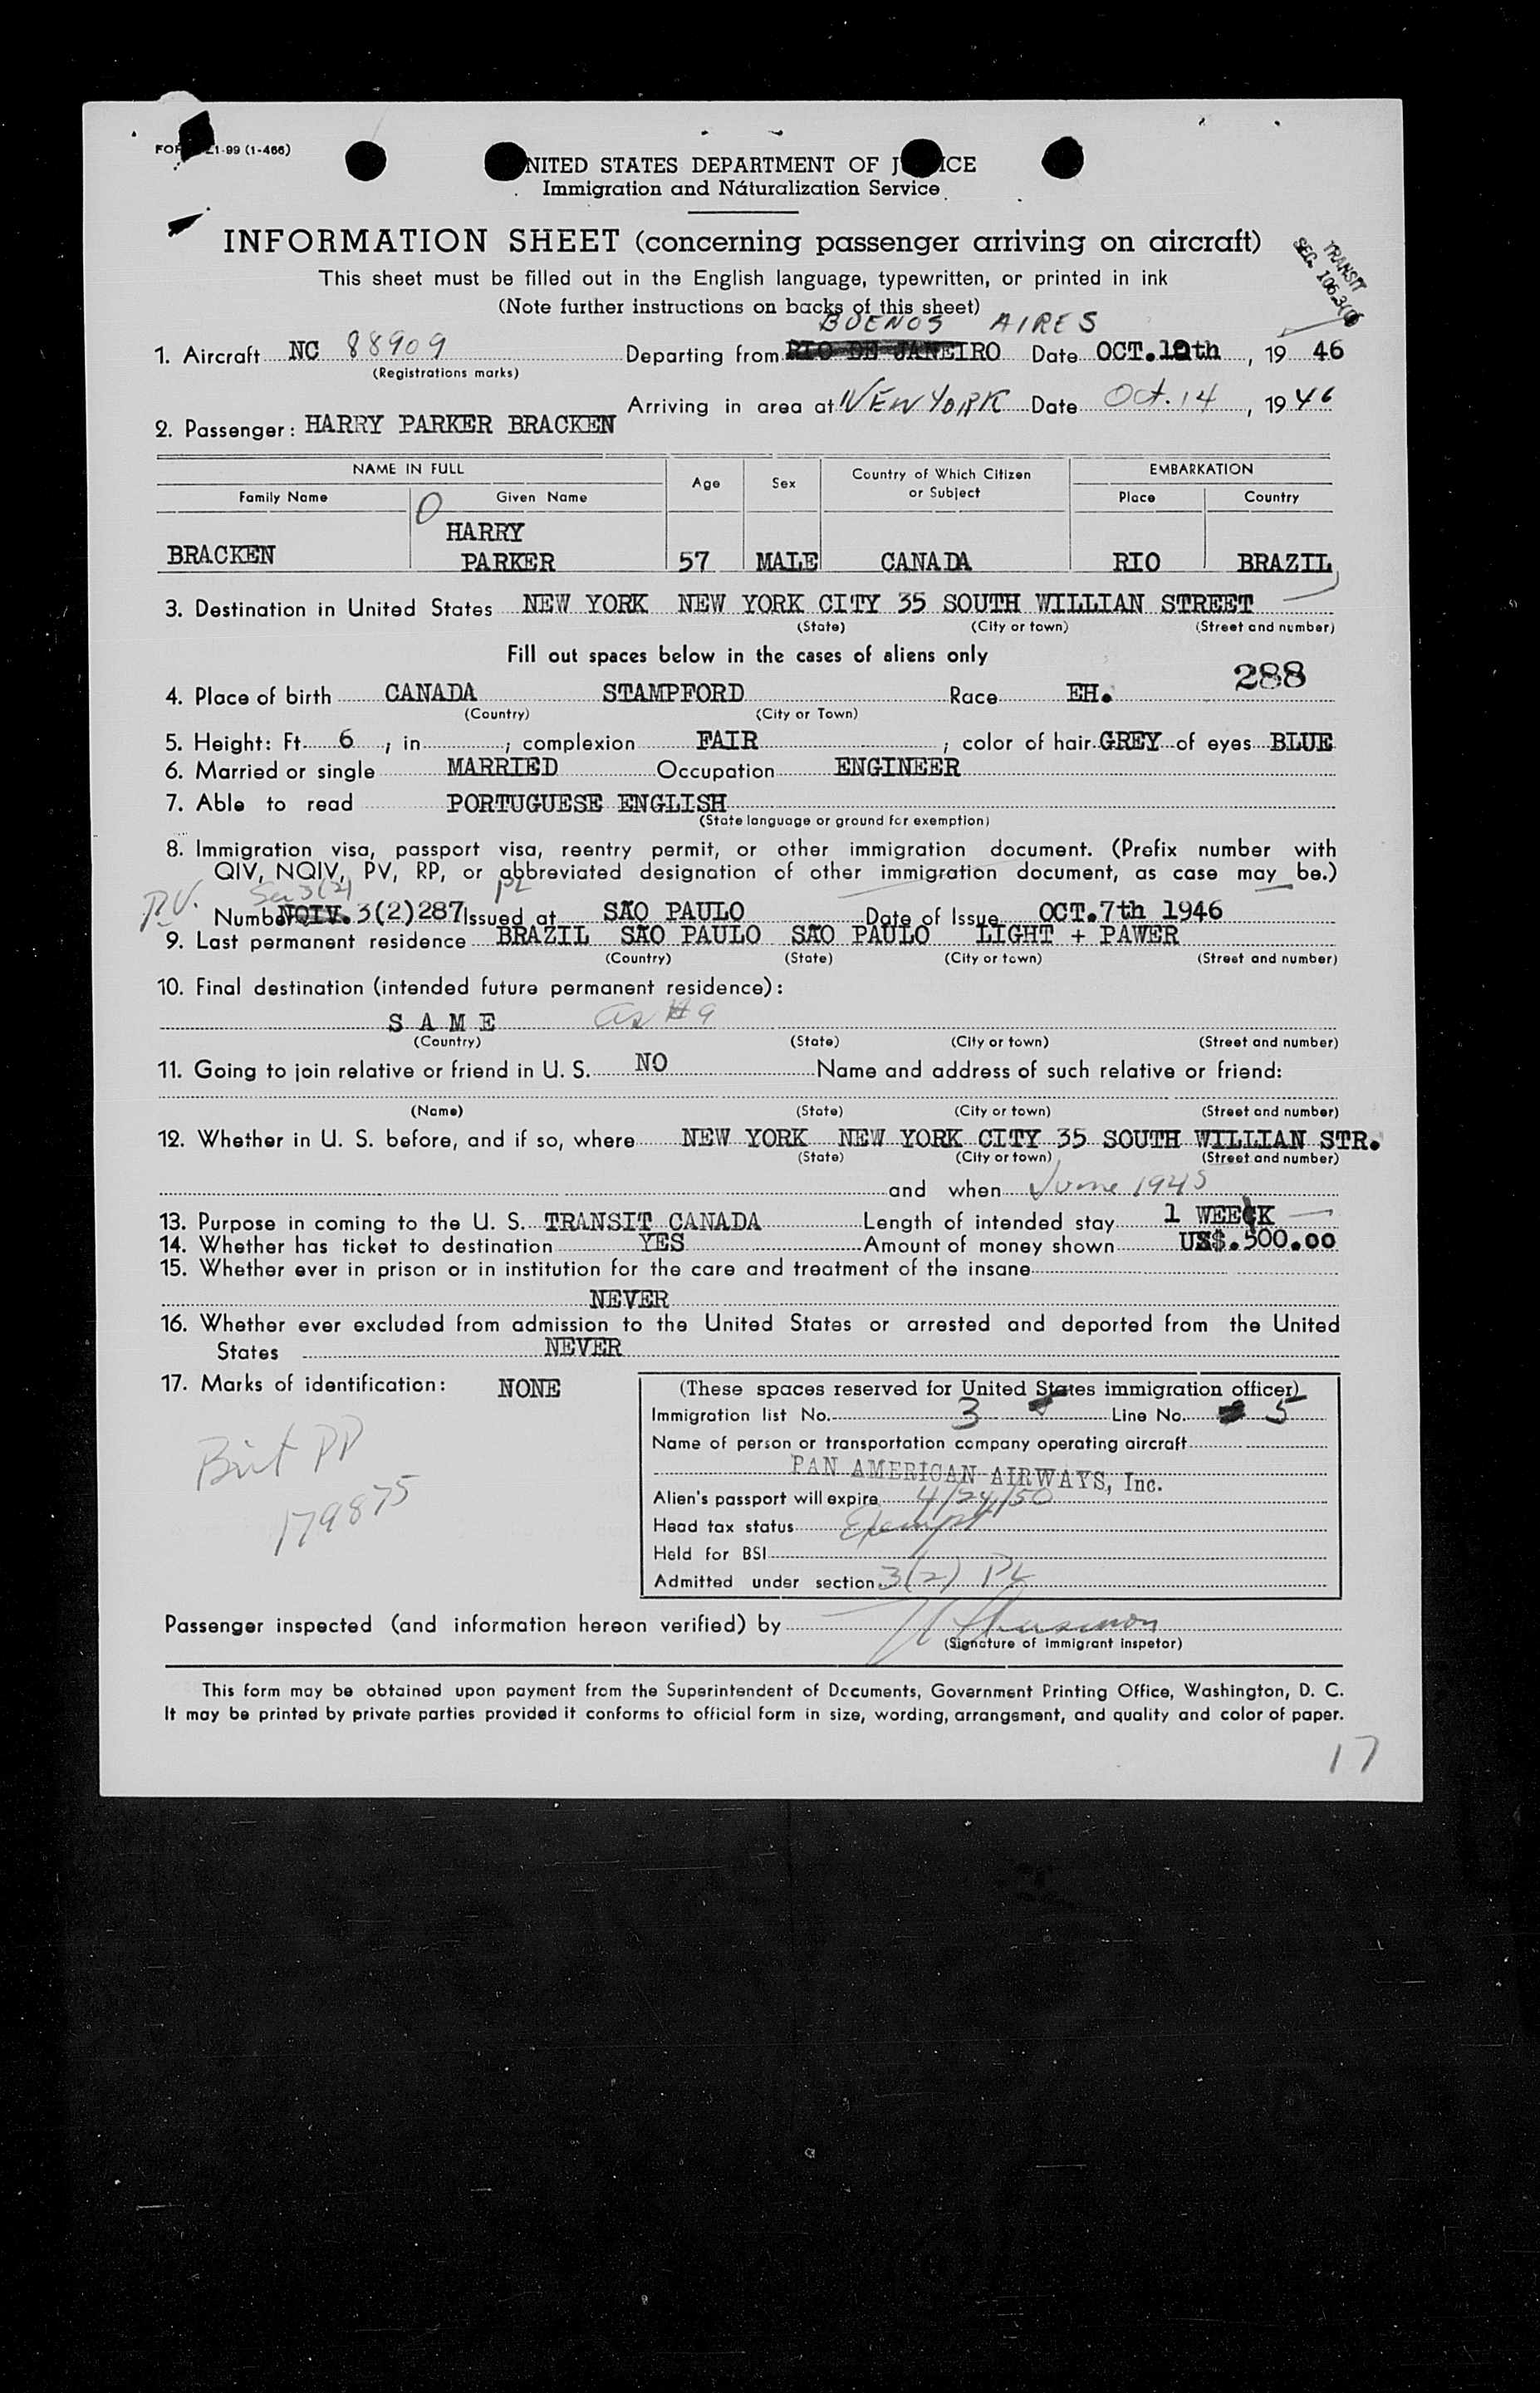 FOR 21-99 (1-466)
NITED STATES DEPARTMENT OF J ICE
Immigration and Naturalization Service
INFORMATION SHEET (concerning passenger arriving on aircraft)
TRANSIT
SEC. 106.3(
This sheet must be filled out in the English language, typewritten, or printed in ink
(Note further instructions on backs of this sheet)
BUENOS AIRES
1. Aircraft NC 88909 Departing from RIO DE JANEIRO Date OCT.12th, 19 46
(Registrations marks)
Arriving in area at NEW YORK Date Oct. 14, 19 46
2. Passenger: HARRY PARKER BRACKEN
NAME IN FULL Age Sex Country of Which Citizen or Subject EMBARKATION
Family Name Given Name Place Country
0
HARRY
BRACKEN PARKER 57 MALE CANADA RIO BRAZIL
3. Destination in United States NEW YORK NEW YORK CITY 35 SOUTH WILLIAN STREET
(State) (City or town) (Street and number)
Fill out spaces below in the cases of aliens only
288
4. Place of birth CANADA STAMPFORD Race EH.
(Country) (City or Town)
5. Height: Ft. 6, in ; complexion FAIR ; color of hair GREY of eyes BLUE
6. Married or single MARRIED Occupation ENGINEER
7. Able to read PORTUGUESE ENGLISH
(State language or ground for exemption)
8. Immigration visa, passport visa, reentry permit, or other immigration document. (Prefix number with
QIV, NQIV, PV, RP, or abbreviated designation of other immigration document, as case may be.)
P.V. Sec 3(2) PL
Number NQIV. 3(2)287 Issued at SÃO PAULO Date of Issue OCT.7th 1946
9. Last permanent residence BRAZIL SÃO PAULO SÃO PAULO LIGHT + PAWER
(Country) (State) (City or town) (Street and number)
10. Final destination (intended future permanent residence):
S A M E as # 9
(Country) (State) (City or town) (Street and number)
11. Going to join relative or friend in U. S. NO Name and address of such relative or friend:
(Name) (State) (City or town) (Street and number)
12. Whether in U. S. before, and if so, where NEW YORK NEW YORK CITY 35 SOUTH WILLIAN STR.
(State) (City or town) (Street and number)
and when June 1945
13. Purpose in coming to the U. S. TRANSIT CANADA Length of intended stay 1 WEEK
14. Whether has ticket to destination YES Amount of money shown US$.500.00
15. Whether ever in prison or in institution for the care and treatment of the insane
NEVER
16. Whether ever excluded from admission to the United States or arrested and deported from the United
States NEVER
17. Marks of identification: NONE
Brit PP
179875
(These spaces reserved for United States immigration officer)
Immigration list No. 3 Line No. 5
Name of person or transportation company operating aircraft
PAN AMERICAN AIRWAYS, Inc.
Alien's passport will expire 4/24/50
Head tax status Exempt
Held for BSI
Admitted under section 3(2) PL
Passenger inspected (and information hereon verified) by
(Signature of immigrant inspetor)
This form may be obtained upon payment from the Superintendent of Documents, Government Printing Office, Washington, D. C.
It may be printed by private parties provided it conforms to official form in size, wording, arrangement, and quality and color of paper.
17